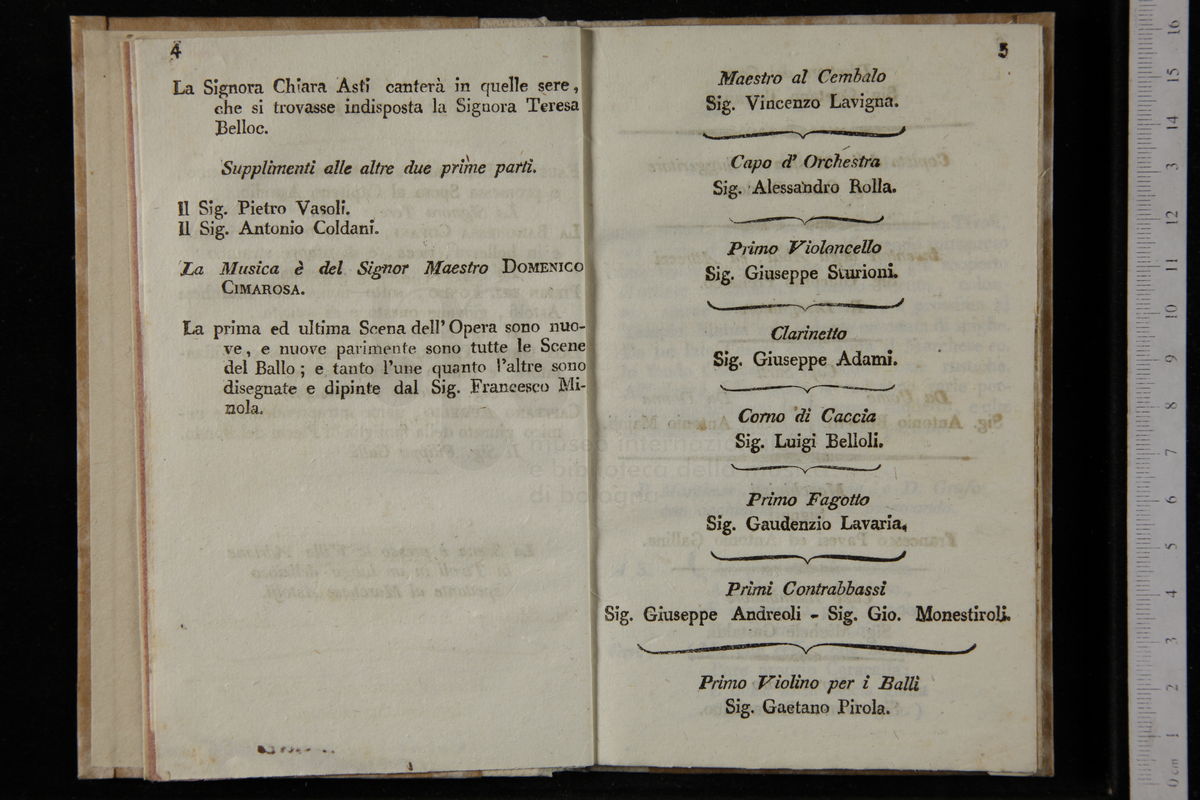 4
La Signora Chiara Asti canterà in quelle sere,
che si trovasse indisposta la Signora Teresa
Belloc.
Supplimenti alle altre due prime parti.
Il Sig. Pietro Vasoli.
Il Sig. Antonio Coldani.
La Musica è del Signor Maestro DOMENICO
CIMAROSA.
La prima ed ultima Scena dell' Opera sono nuo-
ve, e nuove parimente sono tutte le Scene
del Ballo; e tanto l'une quanto l'altre sono
disegnate e dipinte dal Sig. Francesco Mi-
nola.
5
Maestro al Cembalo
Sig. Vincenzo Lavigna.
Capo d' Orchestra
Sig. Alessandro Rolla.
Primo Violoncello
Sig. Giuseppe Sturioni.
Clarinetto
Sig. Giuseppe Adami.
Corno di Caccia
Sig. Luigi Belloli.
Primo Fagotto
Sig. Gaudenzio Lavaria.
Primi Contrabbassi
Sig. Giuseppe Andreoli - Sig. Gio. Monestiroli.
Primo Violino per i Balli
Sig. Gaetano Pirola.
museo internazionale
e biblioteca della
di bologna
0 cm 1 2 3 4 5 6 7 8 9 10 11 12 13 14 15 16